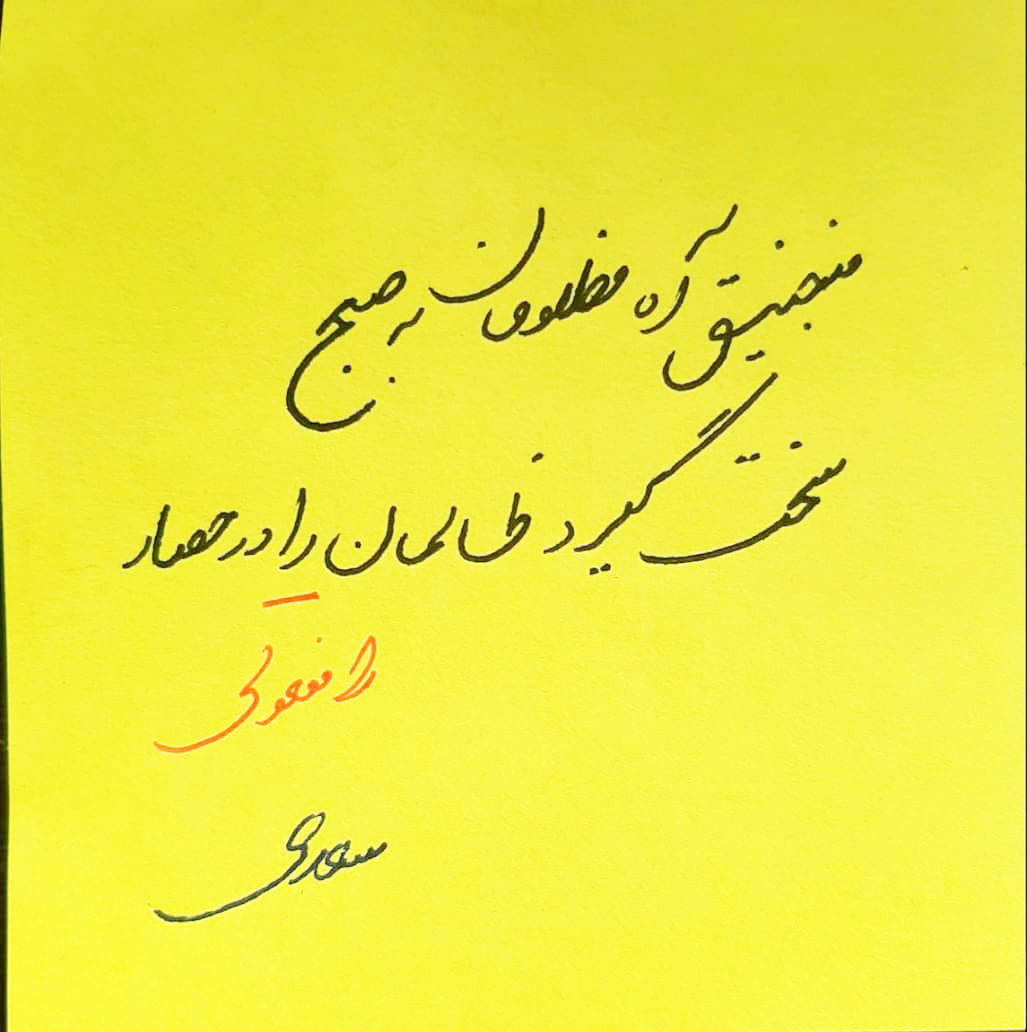 منجنیق آه مظلومان به صبح
سخت گیرد ظالمان را در حصار
را مفعولی
سعدی